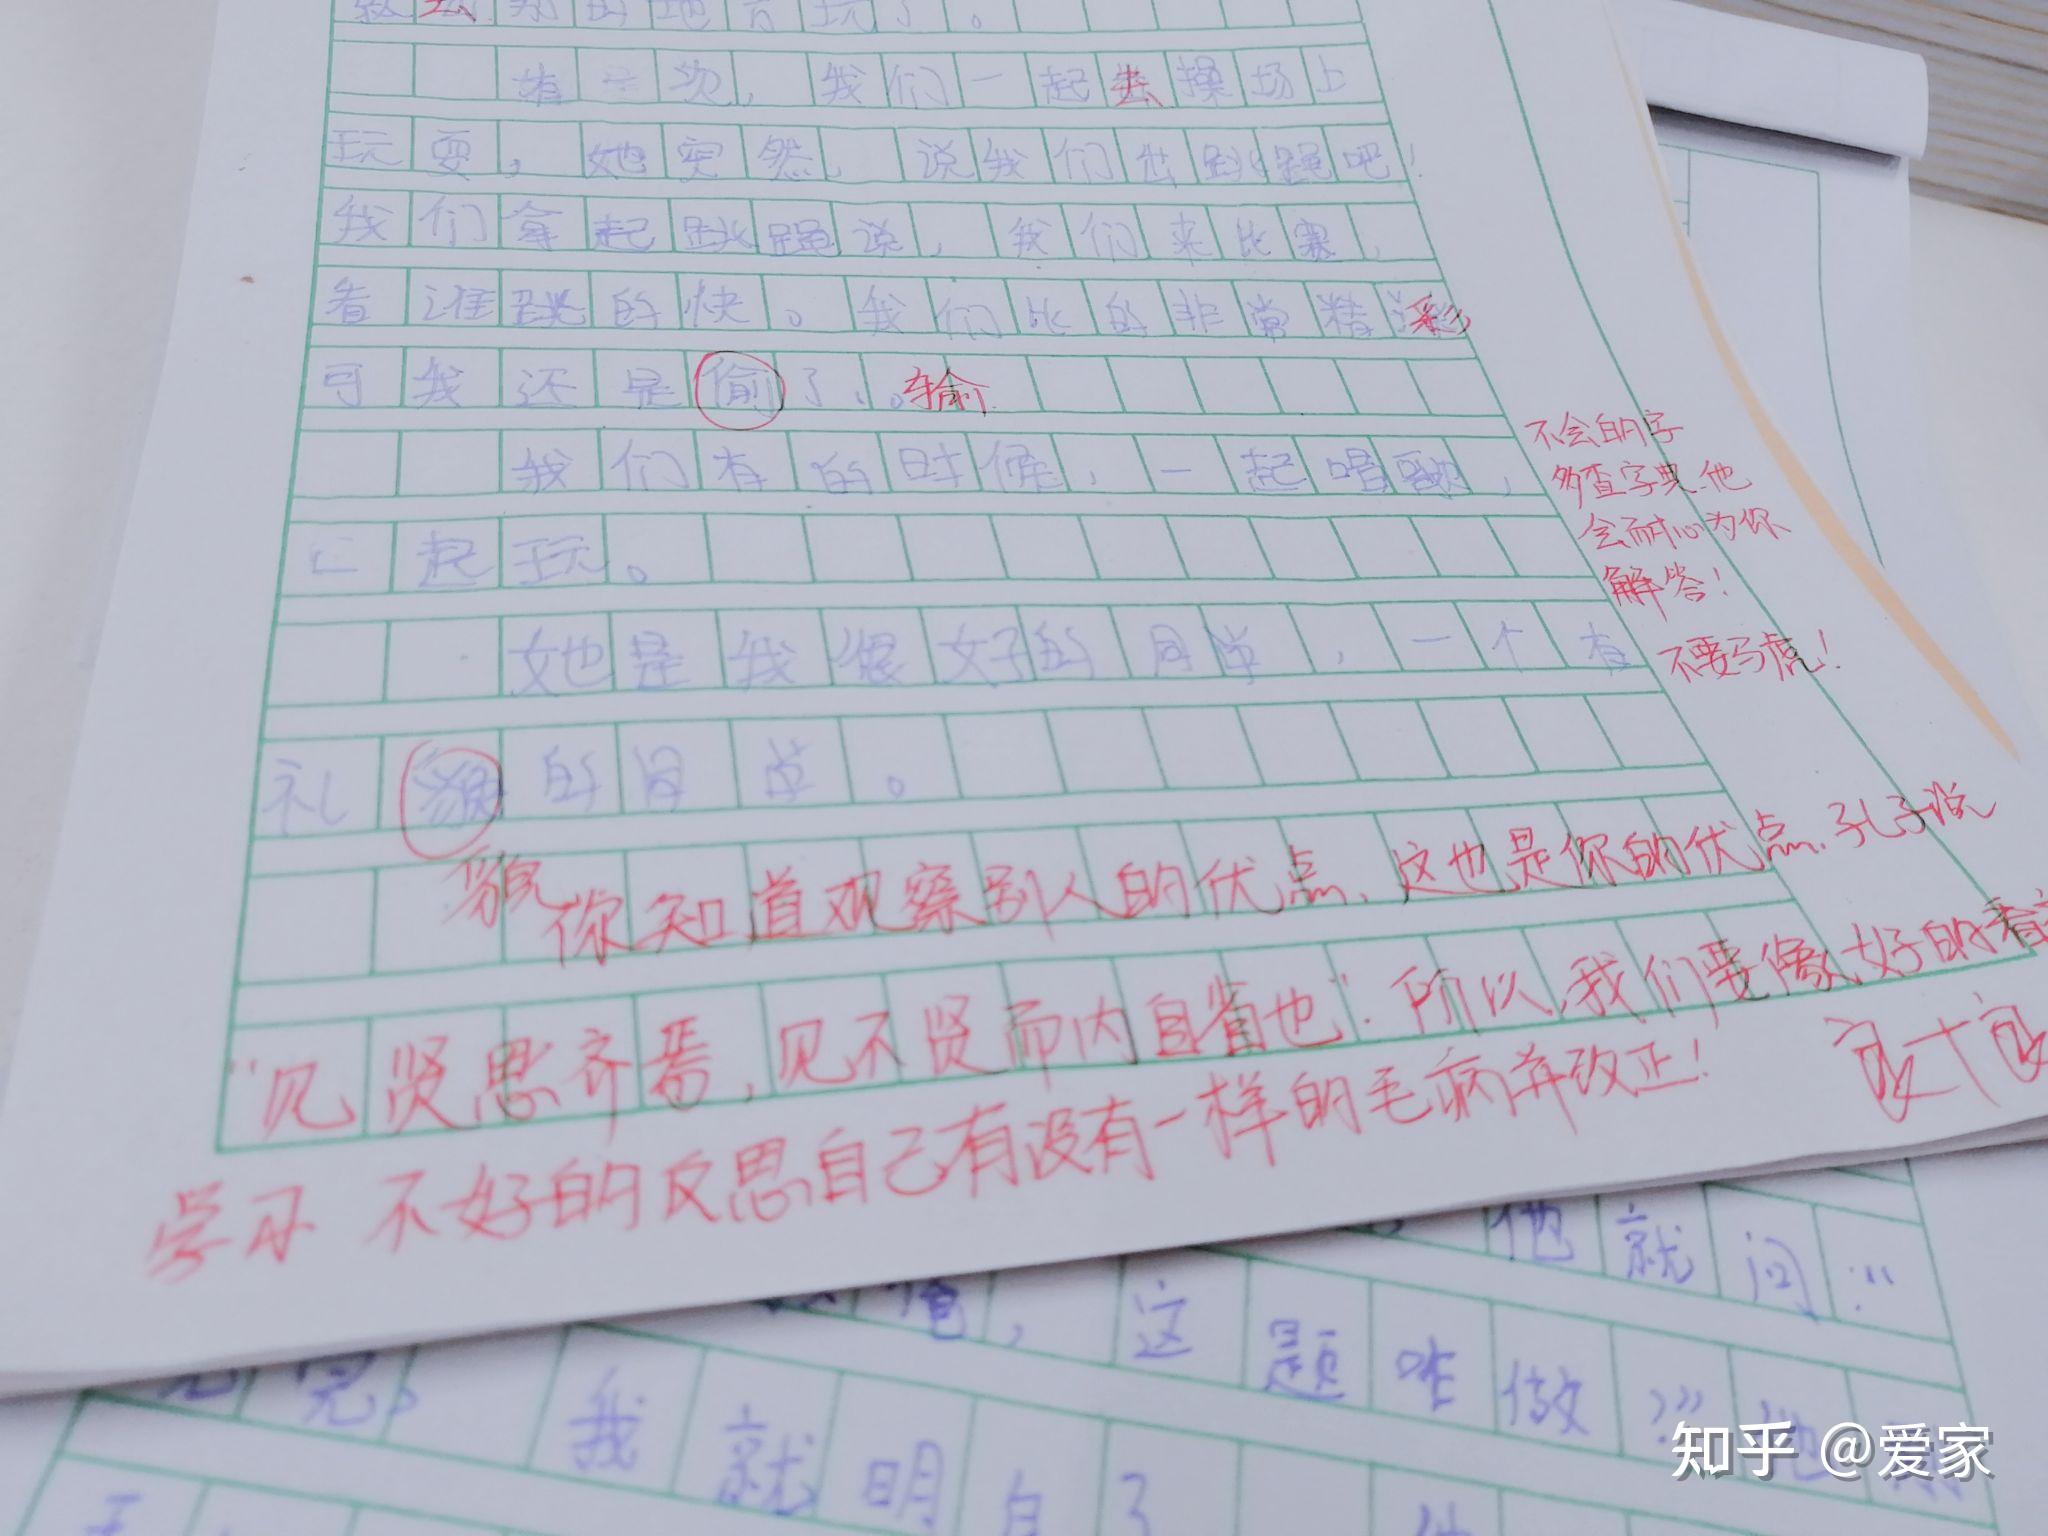 的地方玩了。
有一次,我们一起去操场上
玩耍,她突然,说我们去跳绳吧!
我们拿起跳绳说,我们来比赛,
看谁跳的快。我们比的非常精彩
可我还是偷了、。输
我们有的时候,一起唱歌,
一起玩。
她是我很好的同学,一个有
礼的同学。
貌
不会的字
多查字典他
会而耐心为你
解答!
不要马虎!
你知道观察别人的优点、这也是你的优点.孔子说
"见贤思齐焉,见不贤而内自省也".所以,我们要像好的看
学习 不好的反思自己有没有一样的毛病并改正!
良+良
他就问:"
俺,这题咋做???他
我就明白了
知乎 @爱家